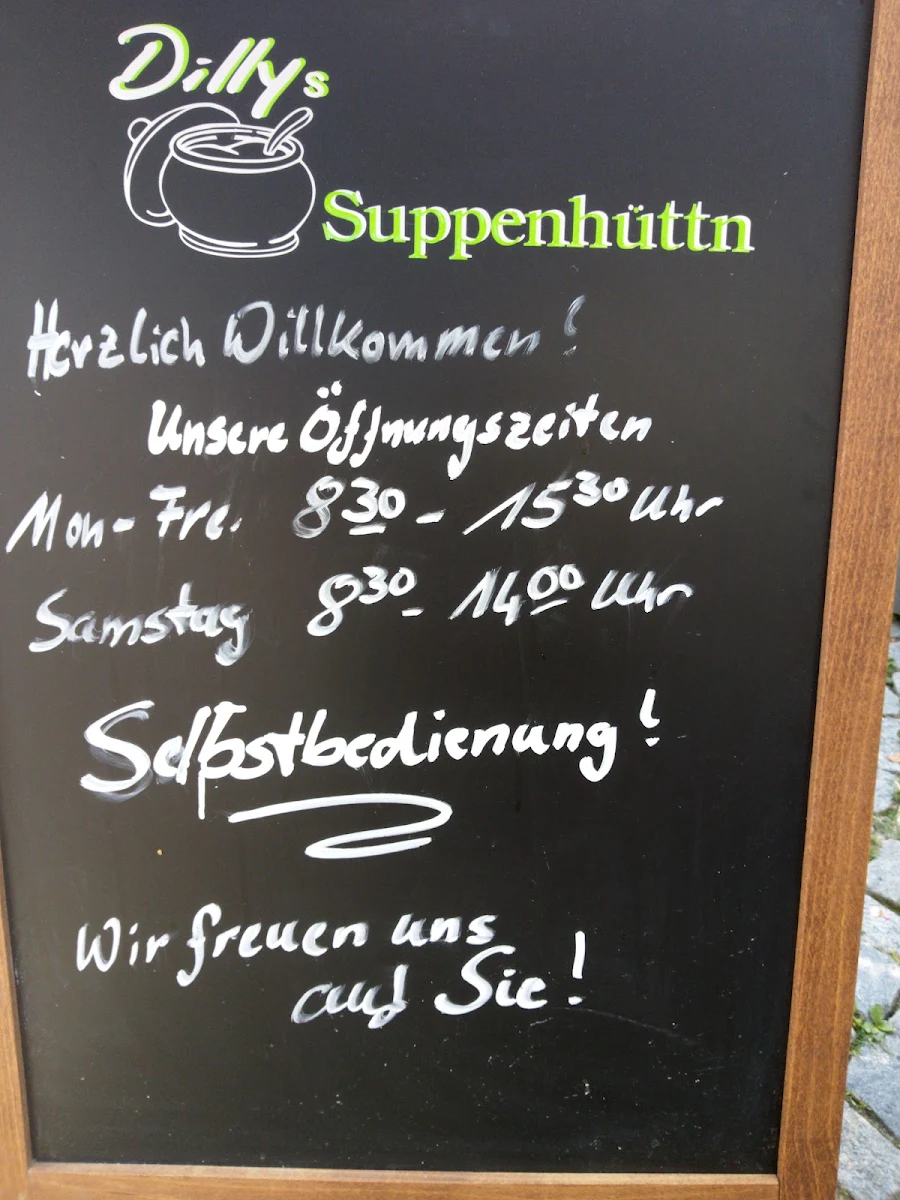 Dillys
Suppenhüttn
Herzlich Willkommen!
Unsere Öffnungszeiten
Mon-Fre. 8³⁰ - 15³⁰ Uhr
Samstag 8³⁰ - 14⁰⁰ Uhr
Selbstbedienung!
Wir freuen uns
auf Sie!